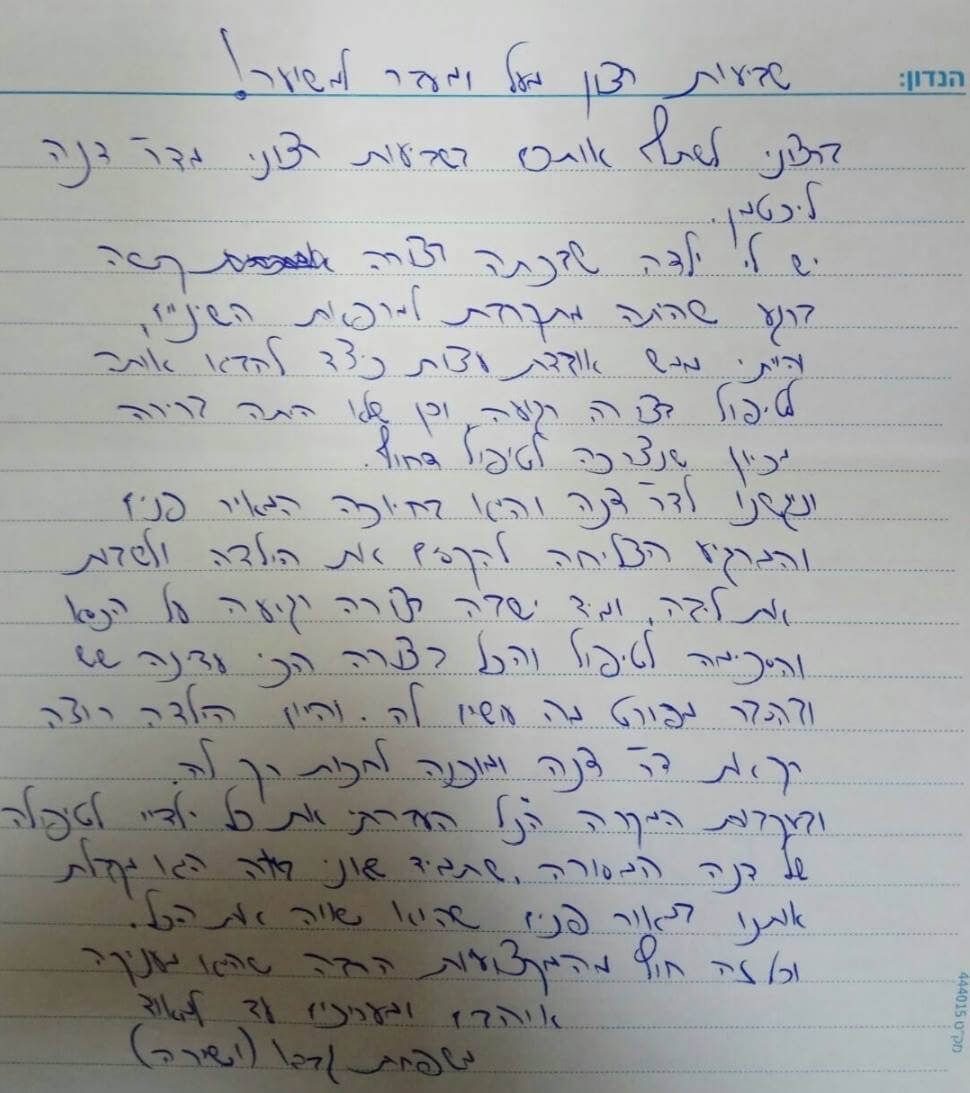 הנדון: שביעות רצון מעל ומעבר למשוער!
ברצוני לשתף אתכם בשביעות רצוני מדר' דנה
ליכטמן.
יש לי ילדה שבכתה בצורה קשה
ברגע שהיתה מתקרבת למרפאת השיניים,
הייתי ממש אובדת עצות כיצד להביא אותה
לטיפול בצורה רגועה, וכן שלא היתה ברירה
מכיון שנצרכה לטיפול דחוף.
ונגשנו לדר' דנה והיא בחיוכה המאיר פנים
והמרגיע הצליחה להקסים את הילדה ולשבות
את ליבה, ומיד ישבה בצורה רגועה על הכסא
והסכימה לטיפול והכל בצורה הכי עדינה שיש
ובהסבר מפורט מה עושים לה. והיום הילדה רוצה
רק את דר' דנה ומוכנה לחכות רק לה.
ובעקבות המקרה הנ"ל העברתי את כל ילדיי לטיפולה
של דנה המסורה, שתמיד אני באה היא מקבלת
אותנו במאור פנים שהוא שווה את הכל.
וכל זה חוץ מהמקצועיות הרבה שהיא מעניקה
אוהבים ומעריכים עד מאוד
משפחת (ושירה)
מק"ט 444015